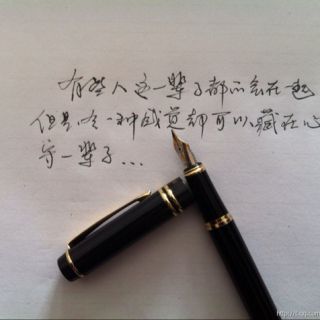 有些人这一辈子都不会在一起
但是有一种感觉却可以藏在心
守一辈子...